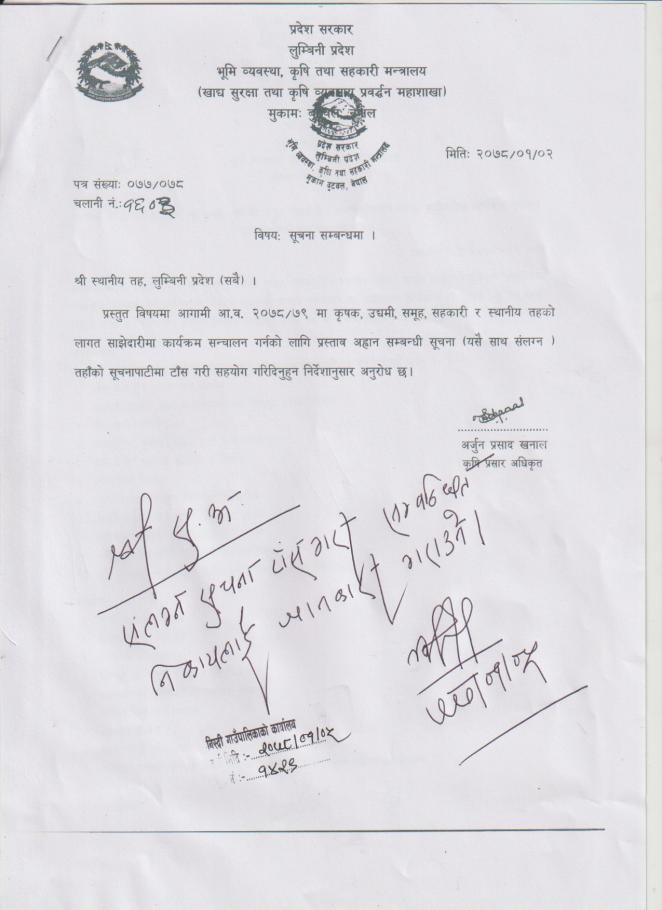 प्रदेश सरकार
लुम्बिनी प्रदेश
भूमि व्यवस्था, कृषि तथा सहकारी मन्त्रालय
(खाद्य सुरक्षा तथा कृषि व्यवसाय प्रवर्द्धन महाशाखा)
मुकामः बुटवल, नेपाल
प्रदेश सरकार
लुम्बिनी प्रदेश
भूमि व्यवस्था, कृषि तथा सहकारी मन्त्रालय
मुकाम बुटवल, नेपाल
मितिः २०७८/०१/०२
पत्र संख्याः ०७७/०७८
चलानी नं.: १६०३
विषयः सूचना सम्बन्धमा ।
श्री स्थानीय तह, लुम्बिनी प्रदेश (सबै) ।
प्रस्तुत विषयमा आगामी आ.व. २०७८/७९ मा कृषक, उद्यमी, समूह, सहकारी र स्थानीय तहको
लागत साझेदारीमा कार्यक्रम सन्चालन गर्नको लागि प्रस्ताव अह्वान सम्बन्धी सूचना (यसै साथ संलग्न )
तहाँको सूचनापाटीमा टाँस गरी सहयोग गरिदिनुहुन निर्देशानुसार अनुरोध छ।
अर्जुन प्रसाद खनाल
कृषि प्रसार अधिकृत
श्री सु.अ.
संलग्न सुचना टाँस गरी सम्बन्धित
निकायलाई जानकारी गराउने।
गाउँपालिकाको कार्यालय
मिति :- २०७८/०१/०५
नं :- १४२६